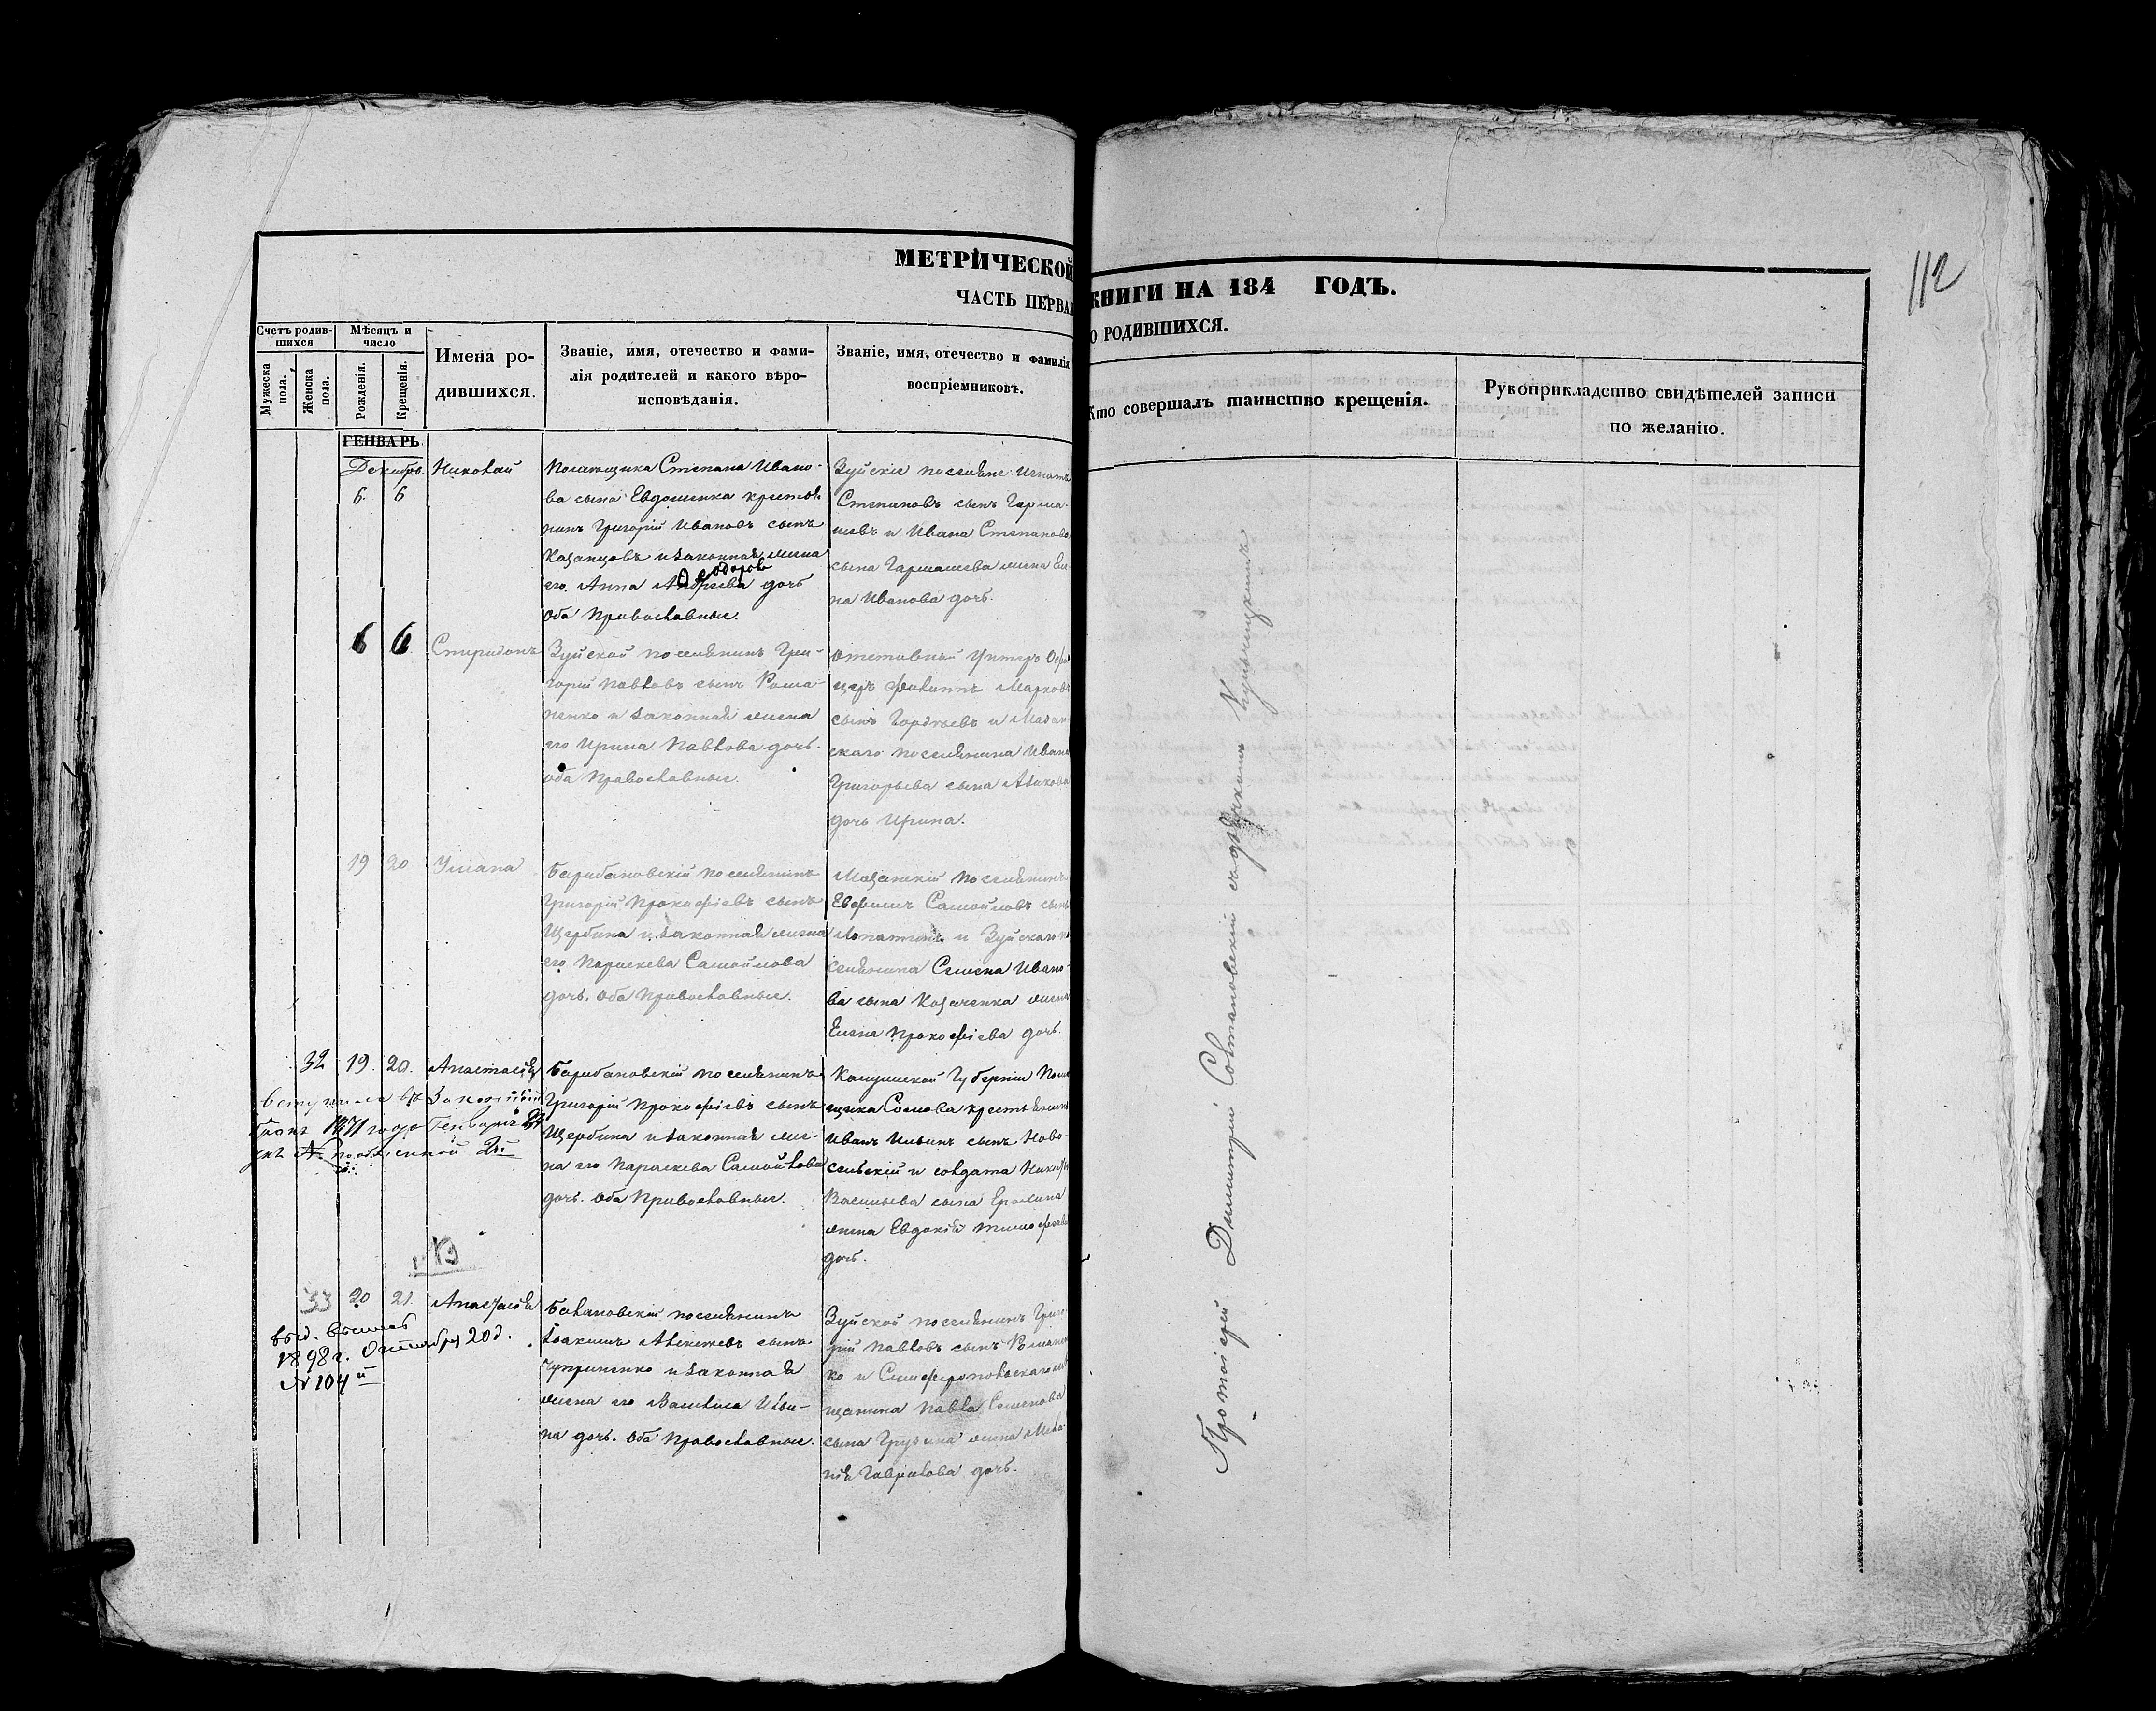 МЕТРИЧЕСКОЙ КНИГИ НА 184 ГОДЪ.
ЧАСТЬ ПЕРВАЯ О РОДИВШИХСЯ.
112
Счетъ родившихся
Мужеска пола.
Женска пола.
Мѣсяцъ и число
Рожденія.
Крещенія.
Имена родившихся.
Званіе, имя, отечество и фами-
лія родителей и какого вѣро-
исповѣданія.
Званіе, имя, отечество и фамилія
воспріемниковъ.
Кто совершалъ таинство крещенія.
Рукоприкладство свидѣтелей записи
по желанію.
ГЕНВАРЬ.
Декабрь.
6. 6
Николай
Помѣщика Степана Ивано-
ва сына Евдошенка крестья
нинъ Григорій Ивановъ сынъ
Казанцовъ и законная жена
его Анна Федорова дочь
Оба Православные.
Зуйскіе поселяне: Игнатъ
Степановъ сынъ Гарма-
шевъ и Ивана Степанова
сына Гармашева жена Еле
на Иванова дочь.
6 6
Спиридонъ
Зуйской поселянинъ Гри-
горій Павловъ сынъ Рома-
ненко и законная жена
его Ирина Павлова дочь.
Оба Православные.
отставной Унтеръ Офи
церъ Филиппъ Марковъ
сынъ Гордѣевъ и Мазан
скаго поселянина Ивана
Григорьева сына
дочь Ирина.
19 20
Уліана
Барабановскій поселянинъ
Григорій Прокофіевъ сынъ
Щербина и законная жена
его Параскева Самойлова
дочь. Оба Православные.
Мазанскій поселянинъ
Евфимъ Самойловъ сынъ
Лопатинъ и Зуйскаго по
селянина Семена Ивано-
ва сына Козаченка жена
Елена Прокофіева дочь.
32 19. 20.
Анастасія
вступила въ законный
бракъ 1871 года Генваря
Барабановскій поселянинъ
Григорій Прокофіевъ сынъ
Щербина и законная же-
на его Параскева Самойлова
дочь. Оба Православные.
Калужской Губерніи Помѣ
щика Сомова крестьянинъ
Иванъ Ильинъ сынъ Ново-
сельскій и солдата
Васильева сына
жена Евдокія Тимофеева
дочь.
33 20 21.
Анастасія
выд. выпись
1898 г. Октября 20 д.
№ 104й
поселянинъ
Іоакимъ Алексѣевъ сынъ
Чуприненко и законная
жена его Василиса Ильи-
на дочь. Оба Православные.
Зуйской поселянинъ Григо
рій Павловъ сынъ Романен
ко и Симферопольскаго мѣ
щанина Павла Семенова
сына жена Мела-
нія Гаврилова дочь.
Протоіерей Димитрій съ дьячкомъ